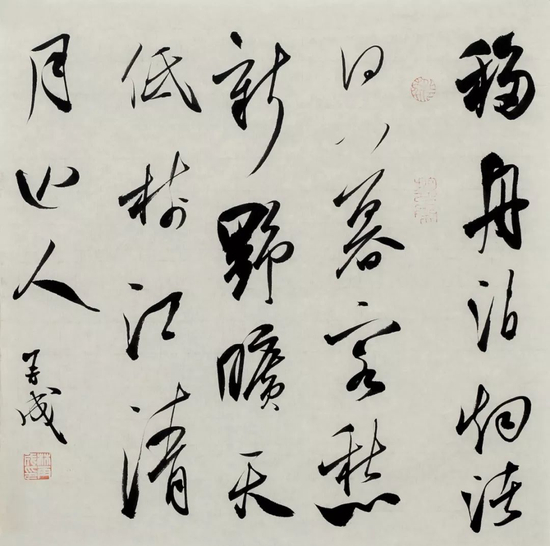 移舟泊烟渚
日暮客愁
新野曠天
低樹江清
月近人